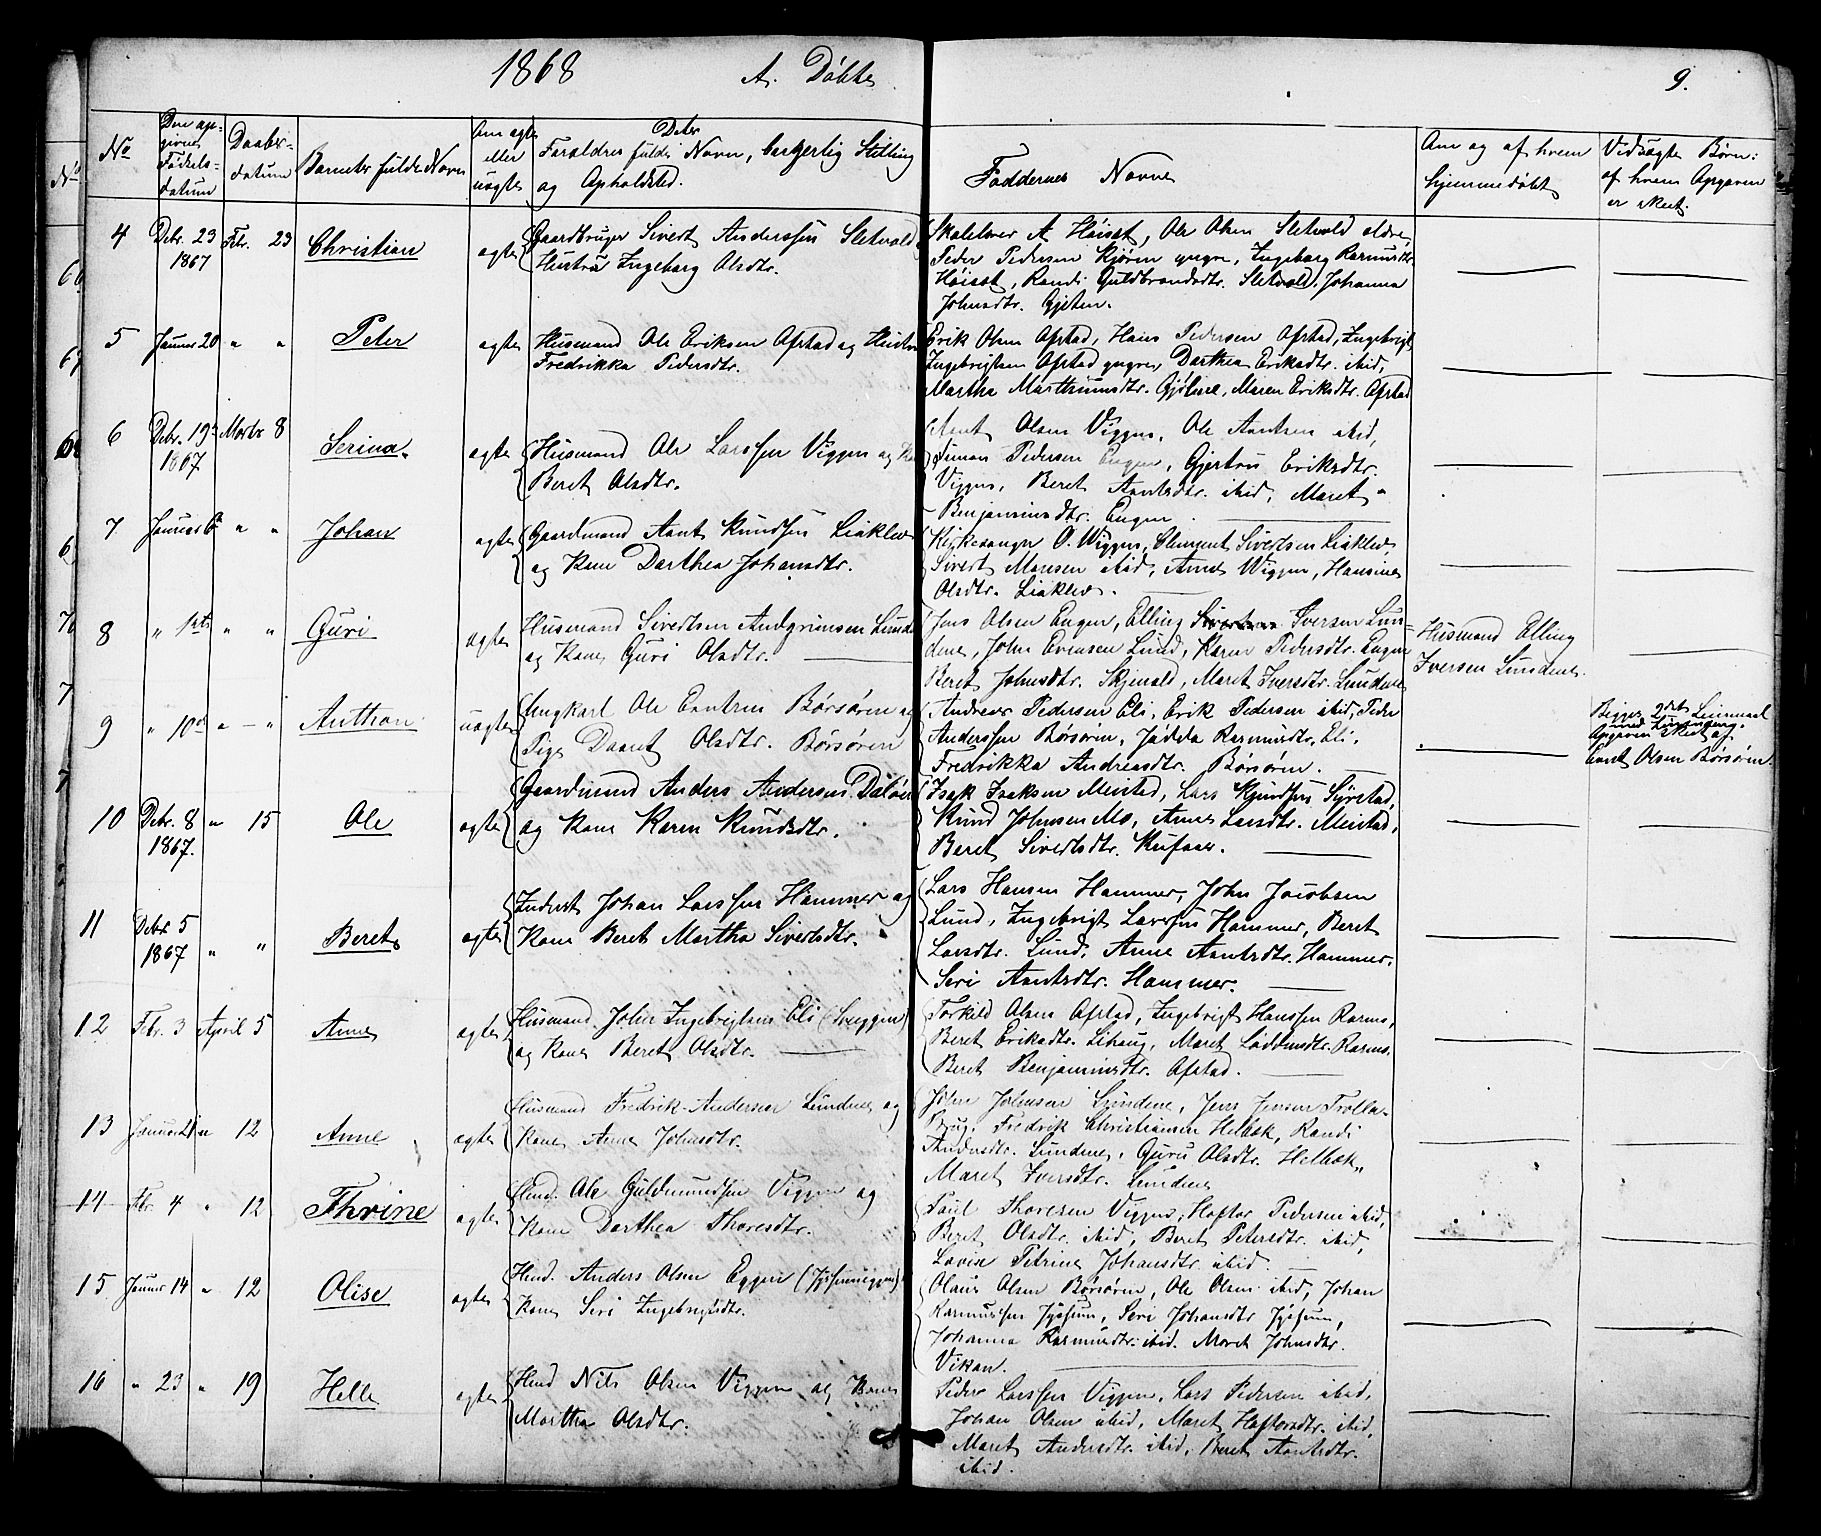 1868 A. Döbte 9.
No
Den op-
givne
Födsels-
datum
Daabs-
datum
Barnets fulde Navn
Om ægte
eller
uægte
Forældres fulde Navn, borgerlig Stilling
og Opholdsted.
Faddernes Navne
Om og af hvem
hjemmedöbt
Ved uægte Börn:
af hvem Opgaven
er skeet.
4 Debr. 23 1867 Febr. 23 Christian ægte
Gaardbruger Sivert Anderssen Sletvold
Hustru Ingeborg Olsdtr.
Skolelærer A Höiset, Ole Olsen Sletvold ældre,
Peder Pedersen Kjören yngre, Ingeborg Rasmusdtr
Höiset, Randi Guldbrandsdtr. Sletvold, Johanna
Johnsdtr. Gjeten.
5 Januar 20 " " Peter ægte
Husmand Ole Eriksen Ofstad og Hustru
Fredrikka Pedersdtr.
Erik Olsen Ofstad, Hans Pedersen Ofstad, Ingebrigt
Ingebrigtsen Ofstad yngre, Dorthea Eriksdtr. ibid,
Martha Gjölme, Maren Eriksdtr. Ofstad
6 Debr. 19 1867 Marts 8 Serina. ægte
Husmand Ole Larssen Viggen og
Beret Olsdtr.
Arnt Olsen Viggen, Ole Arntsen ibid,
Simon Pedersen Engen, Gjertru Eriksdtr.
Viggen, Beret Arntsdtr. ibid, Maret
Benjaminsdtr. Engen
7 Januar 6 " " Johan ægte
Gaardmand Arnt Knudsen Liaklev
og Kone Dorthea Johansdtr.
Kirkesanger O. Wiggen, Clement Sivertsen Liaklev,
Sivert Monsen ibid, Anne Wiggen, Hansine
Olsdtr. Liaklev.
8 " 1ste " " Guri ægte
Husmand Sivertsen Lunden
og Kone Guri Olsdtr.
Jens Olsen Engen, Elling Iversen Lun-
dene, John Evensen Lund, Karen Pedersdtr. Engen
Beret Johnsdtr. Skjenald, Maret Iversdtr. Lundene
Husmand Elling
Iversen Lundene.
9 " 10de " " Anthon uægte
Ungkarl Ole Börsören og
Pige Daaret Olsdtr. Börsören
Andreas Pedersen Eli, Erik Pedersen ibid, Peder
Anderssen Börsören, Rasmusdtr, Eli,
Fredrikka Andreasdtr. Börsören.
Begges 2det Leiermaal
Opgaven skeet af
Olsen Börsören.
10 Debr. 8 1867. " 15 Ole ægte
Gaardmand Anders Andersen
og Kone Karen Knudsdtr.
Isak Isaksen Meistad, Lars Knudsen
Knud Johnsen Mo, Anne Larsdtr. Meistad,
Beret Sivertsdtr.
11 Debr. 5 1867 " " Beret ægte
Inderst Johan Larssen Hammer og
Kone Beret Martha Sivertsdtr.
Lars Hansen Hammer, John Jacobsen
Lund, Ingebrigt Larssen Hammer, Beret
Larsdtr. Lund, Anne Arntsdtr. Hammer,
Seri Arntsdtr. Hammer.
12 Febr. 3 April 5 Anne ægte
Husmand John Ingebrigtsen Eli
og Kone Beret Olsdtr.
Torkild Olsen Ofstad, Ingebrigt Hanssen
Beret Eriksdtr. Lihaug, Maret
Beret Benjaminsdtr. Ofstad.
13 Januar 21 " 12 Anne ægte
Husmand Fredrik Andersen Lundene og
Kone Anne Johnsdtr.
John Johnsen Lundene, Jens Jensen Trolla-
Brug, Fredrik Christiansen Helbæk, Randi
Andersdtr. Lundene, Guru Olsdtr. Helbæk,
Maret Iversdtr. Lundene
14 Febr. 4 " 12 Thrine ægte
Hmd. Ole Guldmundsen Viggen og
Kone Dorthea Thoresdtr.
Paul Thoresen Viggen, Haftor Pedersen ibid,
Beret Olsdtr. ibid, Beret Petersdtr. ibid,
Lovise Petrine Johansdtr. ibid.
15 Januar 14 " 12 Olise ægte
Hmd. Anders Olsen Eggen
Kone Seri Ingebrigtsdtr.
Olaus Olsen Börsören, Ole Olsen ibid, Johan
Rasmussen Jyssum, Seri Johansdtr Jyssum,
Johanna Rasmusdtr. ibid. Maret Johnsdtr.
Vikan.
16 " 23 " 19 Helle ægte
Hmd Nils Olsen Viggen og Kone
Martha Olsdtr.
Peder Larssen Viggen, Lars Pedersen ibid,
Johan Olsen ibid, Maret Haftorsdtr. ibid,
Maret Andersdtr. ibid, Beret Arntsdtr.
ibid.